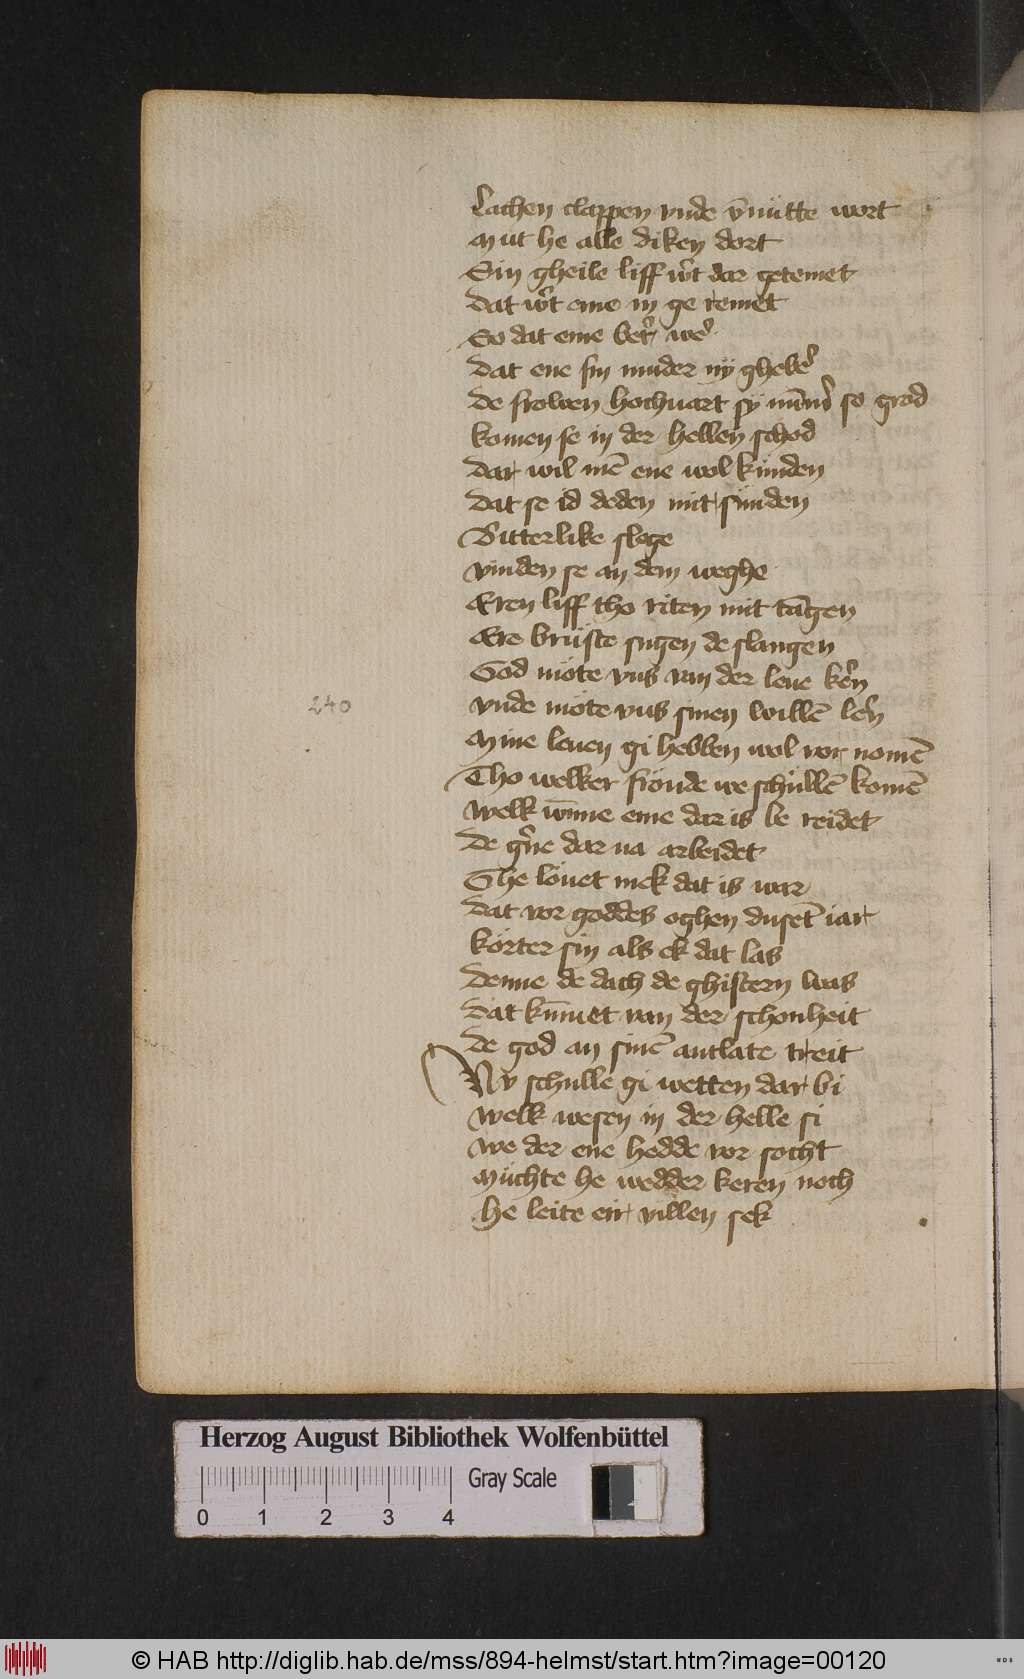 Lachen clappen vnde v̄nütte wort
Mut he alle diken dort
Ein gheile liff wr̄t dar getemet
Dat wr̄t eme in ge remet
So dat eme betr̄ wer̄
Dat ene sin muder ny gheber̄
De frowen hochuart sy nūmr̄ so grod
komen se in der hellen schod
Dar wil mē ene wol künden
Dat se id deden mit sünden
Bitterlike slege
vinden se an dem weghe
Eren liff tho riten mit tāgen
Ere brüste sugen de slangen
God möte vns van der leue ker̄n
vnde möte vns sinen willē ler̄n
Mine leuen gi hebben wol vor nomē
Tho welker fröude we schüllē komē
welk wn̄ne eme dar is be reidet
De gr̄ne dar na arbeidet
Ghe löuet mek dat is war
Dat vor goddes oghen dusēt iar
körter sin als ek dat las
Denne de dach de ghistern was
Dat kūmet van der schonheit
De god an sinē antlate treit
Nv schulle gi wetten dar bi
welk wesen in der helle si
we der ene hedde vor socht
Müchte he wedder keren noch
He leite eir villen sek
240
Herzog August Bibliothek Wolfenbüttel
Gray Scale
0 1 2 3 4
© HAB http://diglib.hab.de/mss/894-helmst/start.htm?image=00120